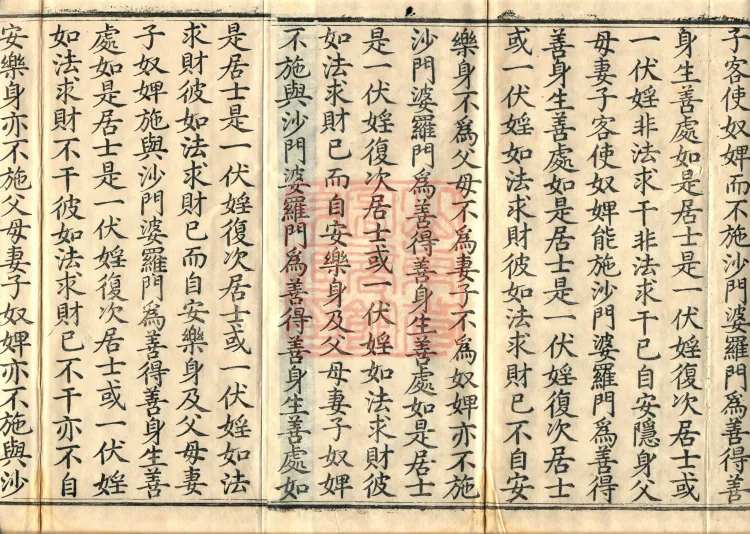 子客使奴婢而不施沙門婆羅門爲善得善
身生善處如是居士是一伏婬復次居士或
一伏婬非法求干非法求干已自安隱身父
母妻子客使奴婢能施沙門婆羅門爲善得
善身生善處如是居士是一伏婬復次居士
或一伏婬如法求財彼如法求財已不自安
樂身不爲父母不爲妻子不爲奴婢亦不施
沙門婆羅門爲善得善身生善處如是居士
是一伏婬復次居士或一伏婬如法求財彼
如法求財已而自安樂身及父母妻子奴婢
不施與沙門婆羅門爲善得善身生善處如
是居士是一伏婬復次居士或一伏婬如法
求財彼如法求財已而自安樂身及父母妻
子奴婢施與沙門婆羅門爲善得善身生善
處如是居士是一伏婬復次居士或一伏婬
如法求財不干彼如法求財已不干亦不自
安樂身亦不施父母妻子奴婢亦不施與沙